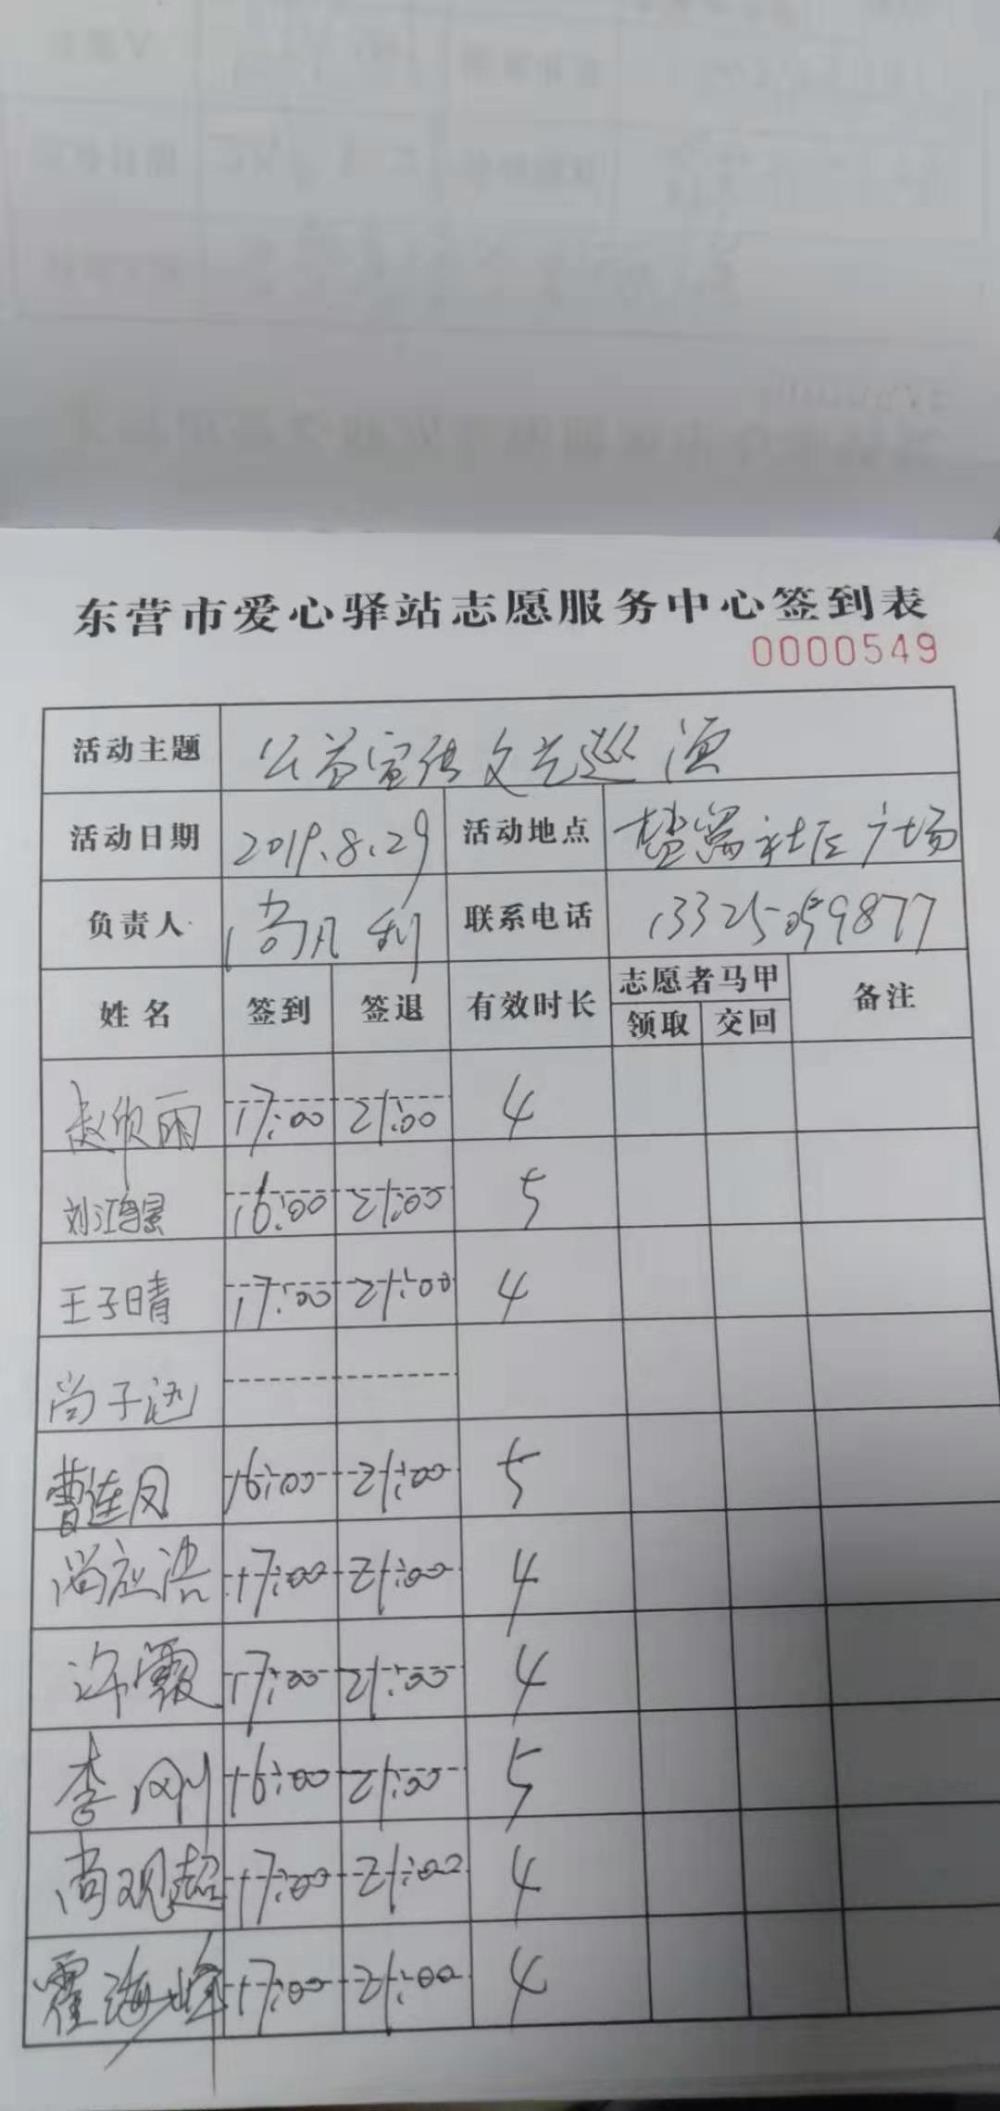 东营市爱心驿站志愿服务中心签到表
0000549
活动主题 公益宣传文艺巡演
活动日期 2019.8.29 活动地点 社区广场
负责人 尚凡利 联系电话
姓名 签到 签退 有效时长 志愿者马甲 备注
领取 交回
赵欣雨 17:00 21:00 4
刘江海景 16:00 21:00 5
王子晴 17:00 21:00 4
尚子涵
曹连凤 16:00 21:00 5
尚应浩 17:00 21:00 4
许霞 17:00 21:00 4
李刚 16:00 21:00 5
尚观超 17:00 21:00 4
霍海峰 17:00 21:00 4